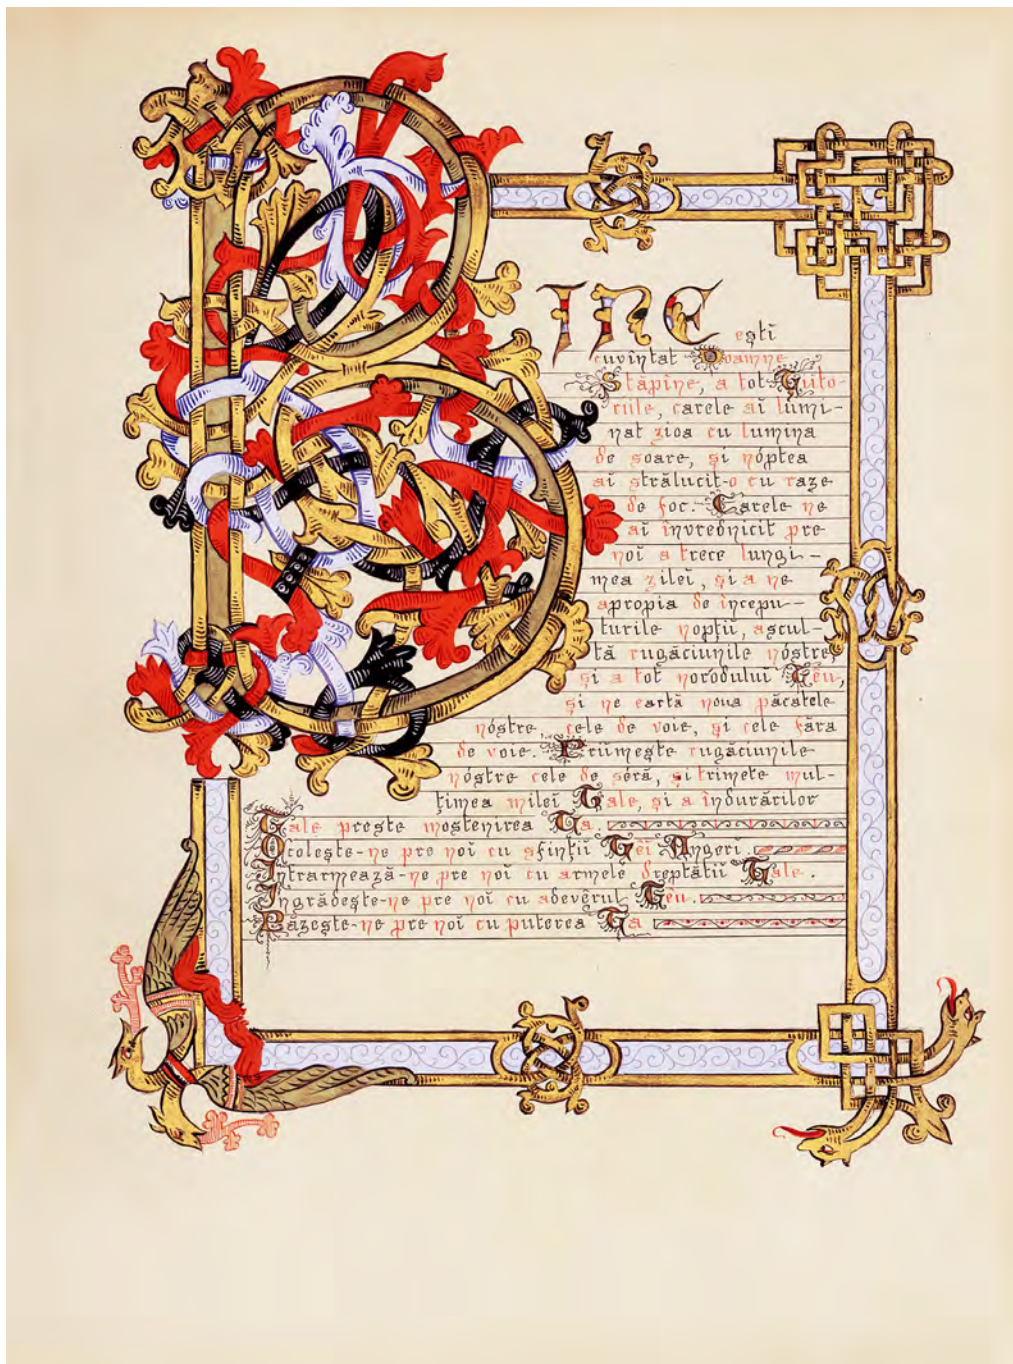 BINE ești
cuvîntat Doamne
Stăpîne, a tot Țiito-
riule, carele aĭ lumi-
nat zioa cu lumina
de soare, și nóptea
aĭ strălucit-o cu raze
de foc. Carele ne
aĭ învrednicit pre
noĭ a trece lungi-
mea zileĭ, și a ne
apropia de începu-
turile nopțiĭ, ascul-
tă rugăciunile nóstre,
și a tot noroduluĭ Tĕu,
și ne eartă noua păcatele
nóstre, cele de voie, și cele făra
de voie. Priimește rugăciunile
nóstre cele de séră, și trimete mul-
țimea mileĭ Tale, și a îndurărilor
Tale preste moștenirea Ta.
Ocolește-ne pre noĭ cu sfințiĭ Tĕi Angeri.
Intrarmează-ne pre noĭ cu armele dreptățiĭ Tale.
Ingrădește-ne pre noĭ cu adevĕrul Tĕu.
Păzește-ne pre noĭ cu puterea Ta